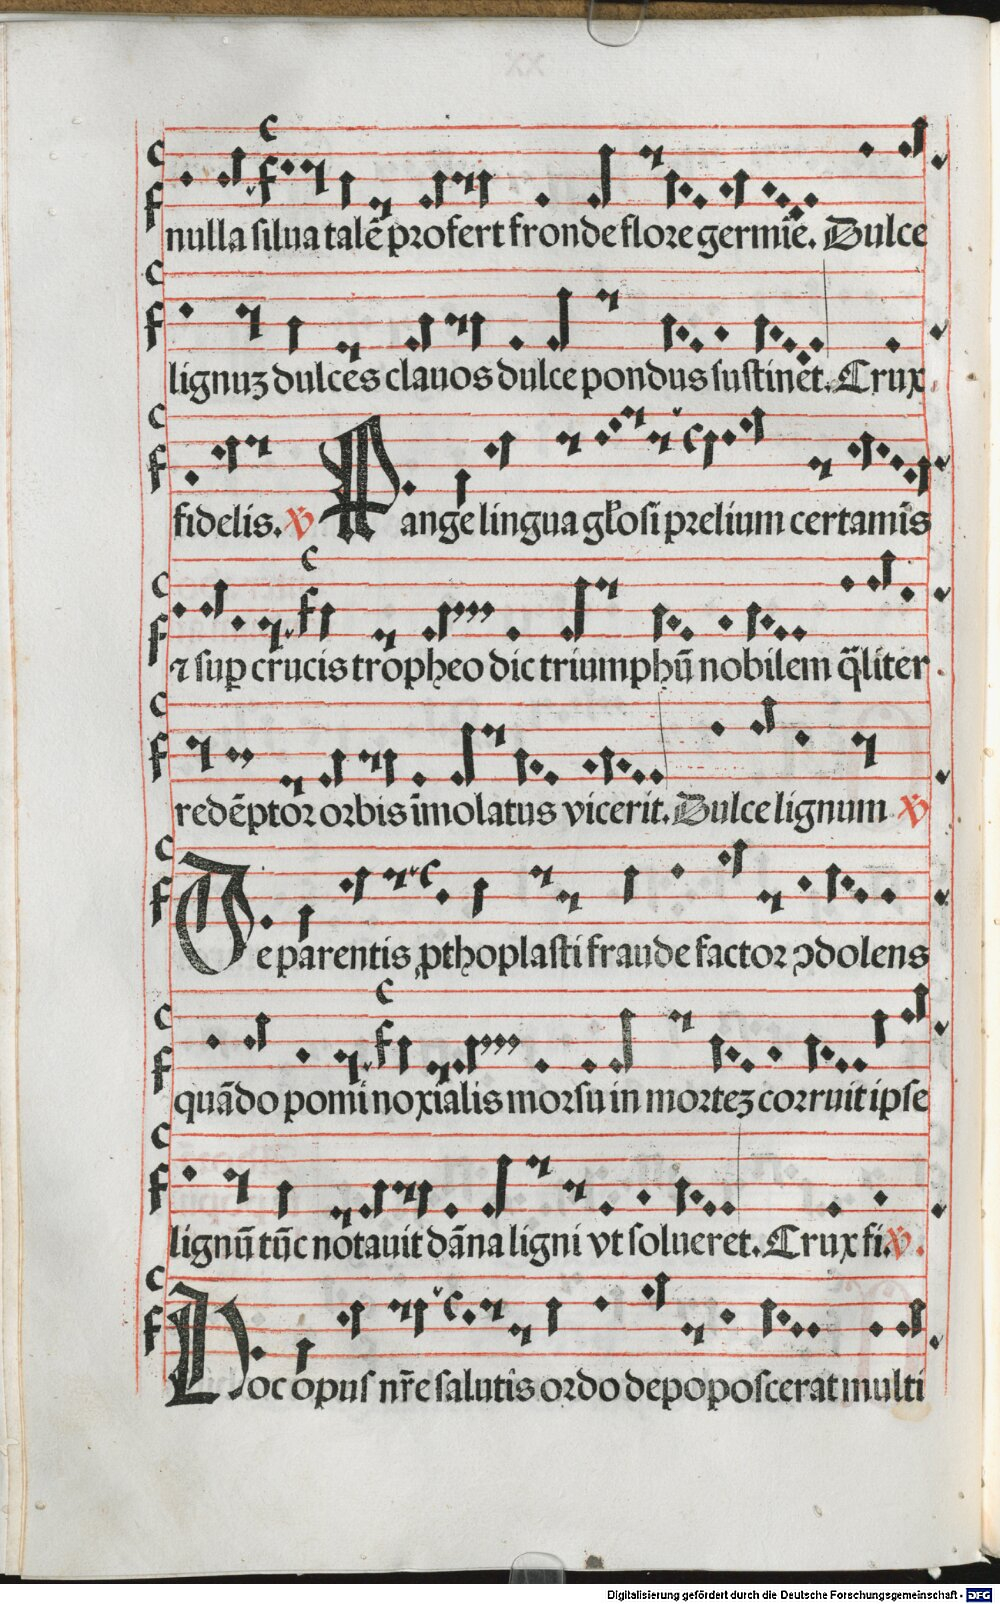 nulla silua talē profert fronde flore germīe. Dulce
lignuz dulces clauos dulce pondus sustinēt. Crux
fidelis. ℣ Pange lingua gl̄osi prelium certamīs
⁊ sup crucis tropheo dic triumphū nobilem q̄liter
redēptor orbis īmolatus vicerit. Dulce lignum ℣
De parentis ꝓthoplasti fraude factor ↄdolens
quādo pomi noxialis morsu in mortez corruit ipse
lignū tūc notauit dāna ligni vt solueret. Crux fi. ℣.
Hoc opus nr̄e salutis ordo depoposcerat multi
Digitalisierung gefördert durch die Deutsche Forschungsgemeinschaft - DFG